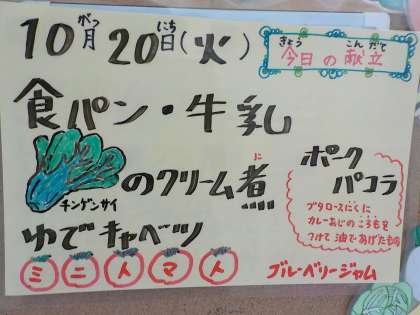 10月 20日(火)
がつ にち
きょう こんだて
今日の献立
食パン・牛乳
チンゲンサイ
のクリーム煮
に
ポーク
パコラ
ブタロースにくに
カレーあじのころもを
つけて油であげたもの
ゆでキャベツ
ミニトマト
ブルーベリージャム